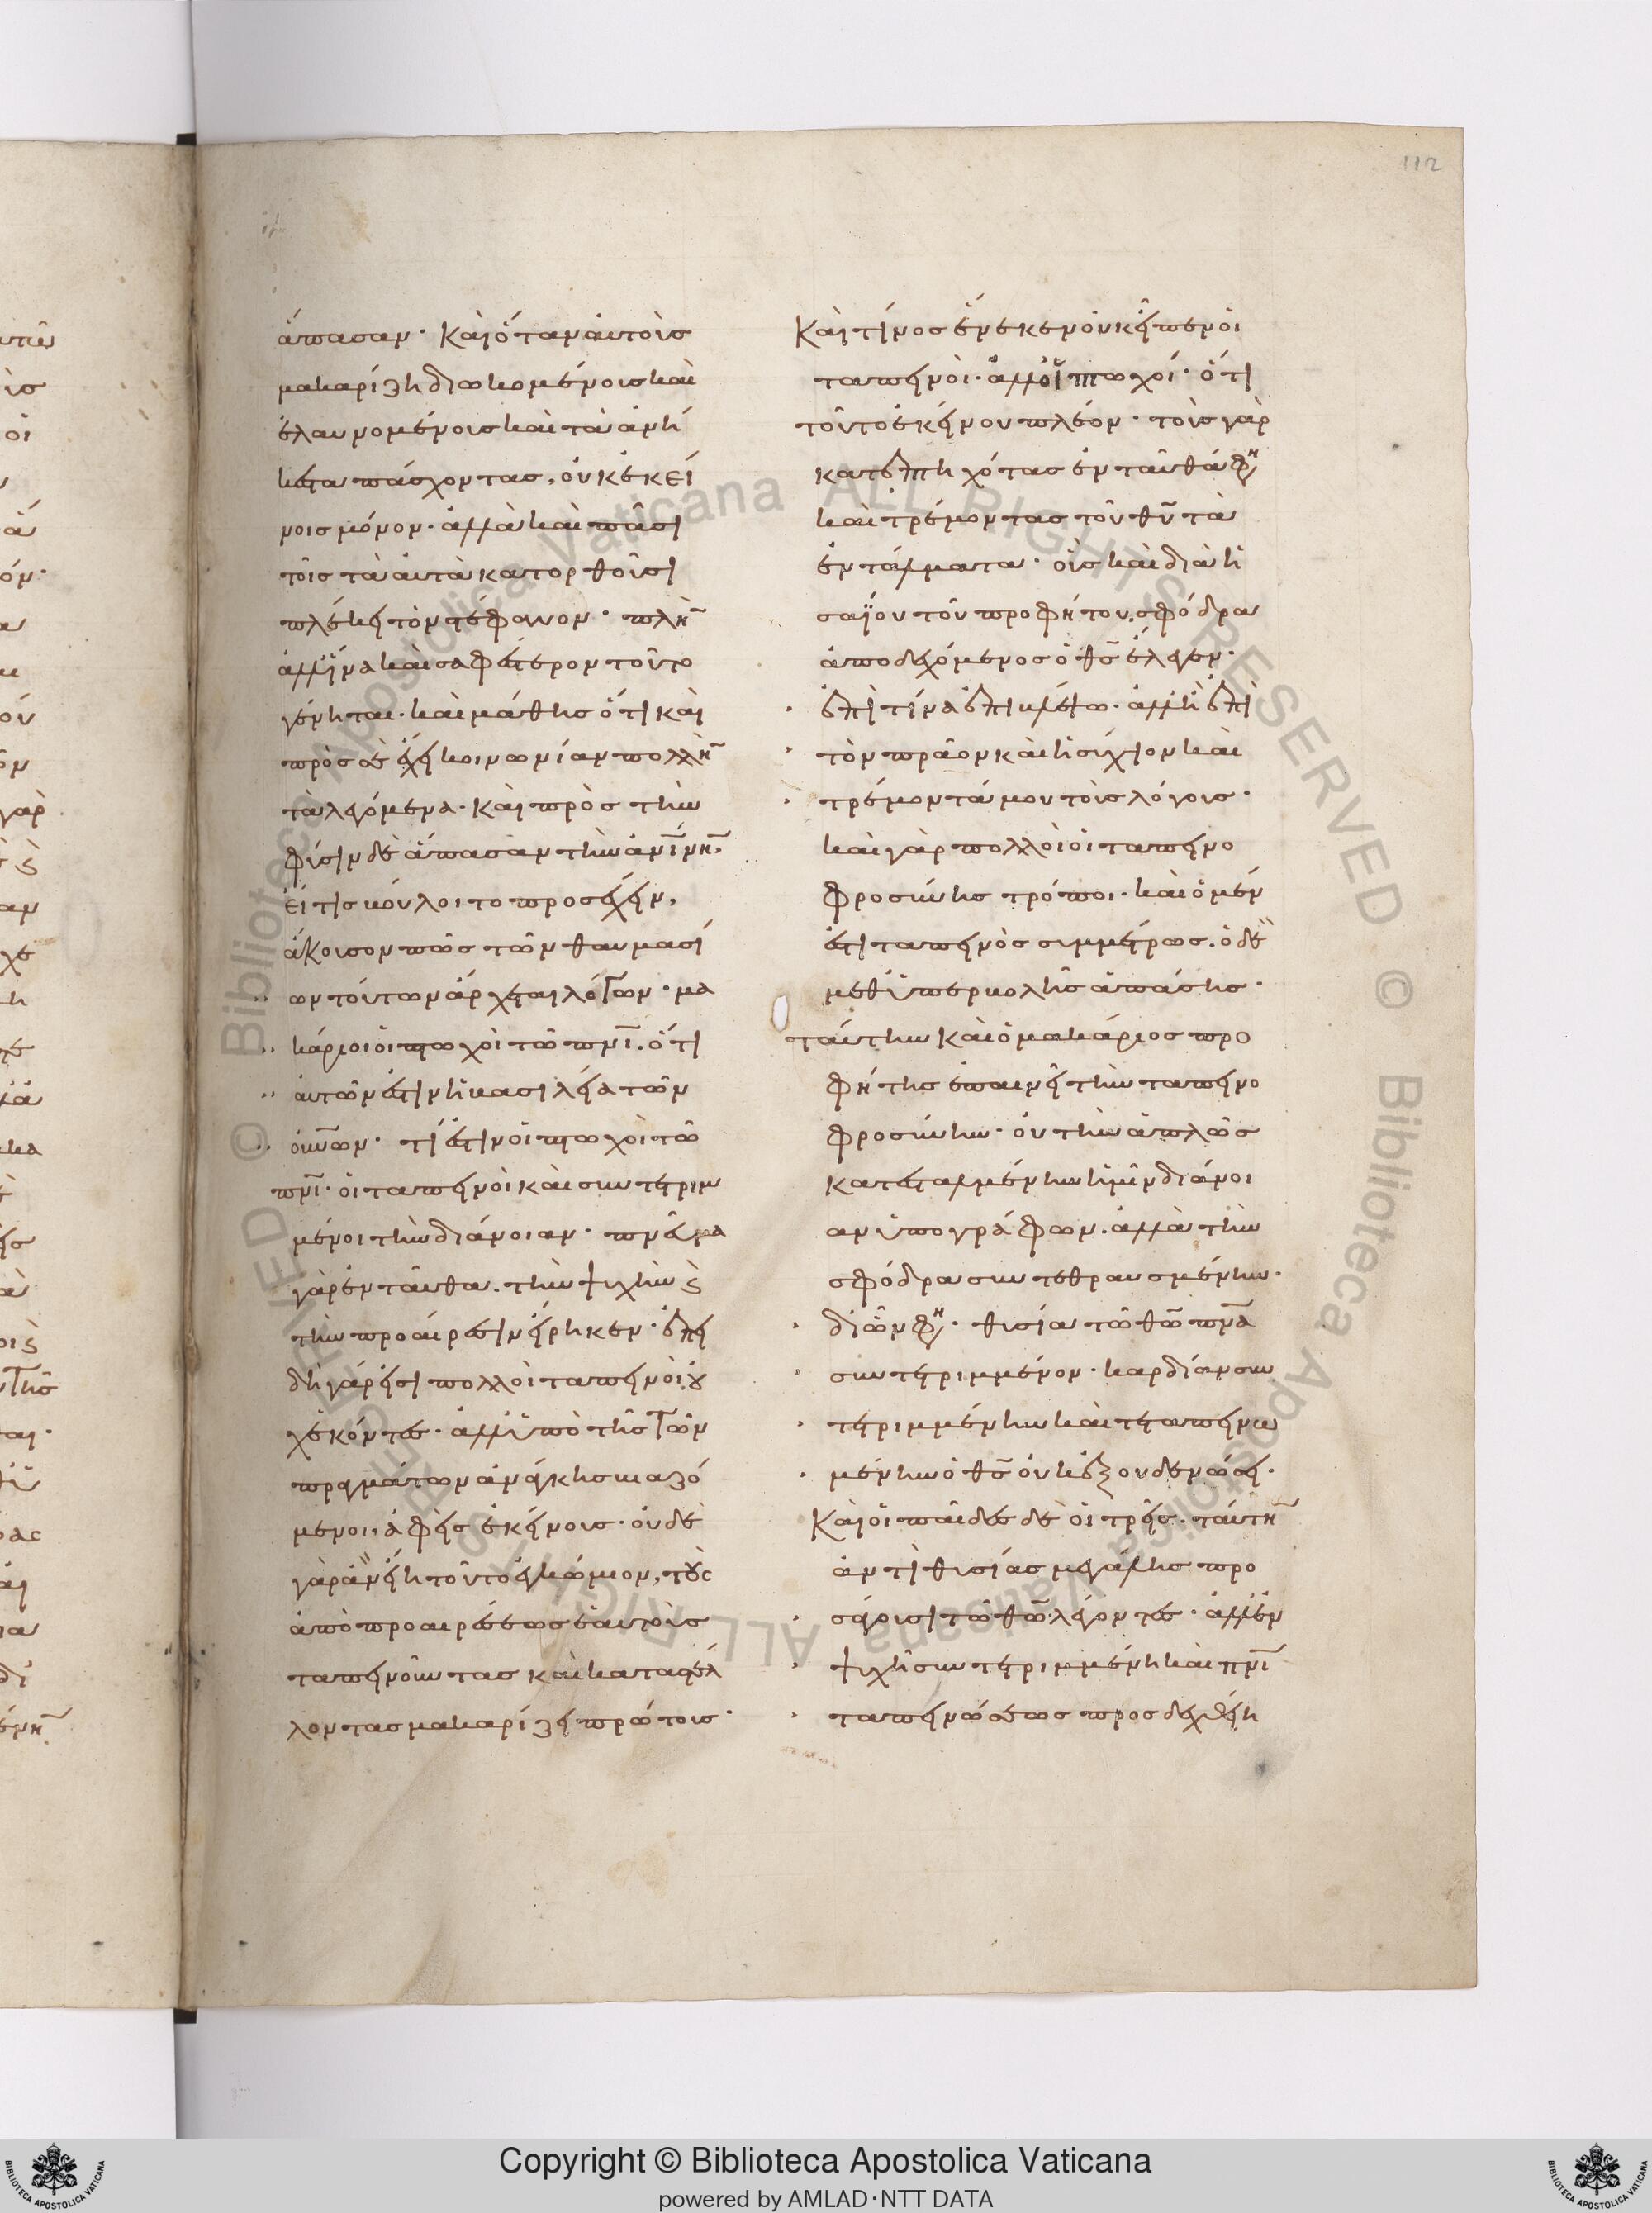 112
ἅπασαν· Καὶ ὅταν αὐτοὺς
μακαρίζη διωκομένους καὶ
ἐλαυνομένους καὶ τὰ ἀνή
κεστα πάσχοντας, οὐκ ἐκεί
νοις μόνον· ἀλλὰ καὶ πᾶσι
τοῖς τὰ αὐτὰ κατορθοῦσι
πλέκει τὸν στέφανον· πλὴν
ἀλλ' ἵνα καὶ σαφέστερον τοῦτο
γένηται· καὶ μάθης ὅτι καὶ
πρὸς σὲ ἔχει κοινωνίαν πολλὴν
τὰ λεγόμενα· καὶ πρὸς τὴν
φύσιν δὲ ἅπασαν τὴν ἀνίνην,
εἴ τις βούλοιτο προσέχειν,
ἄκουσον πῶς τῶν θαυμασί
ων τούτων ἄρχεται λόγων· μα
κάριοι οἱ πτωχοὶ τῶ πνι· ὅτι
αὐτῶν ἐστιν ἡ βασιλεία τῶν
οὐνων· τί ἐστιν οἱ πτωχοὶ τῶ
πνι· οἱ ταπεινοὶ καὶ συντετριμ
μένοι τὴν διάνοιαν· πνεῦμα
γὰρ ἐνταῦθα· τὴν ψυχὴν ϗ
τὴν προαίρεσιν εἴρηκεν· ἐπει
δὴ γάρ εἰσι πολλοὶ ταπεινοὶ οὐ
χ ἑκόντες· ἀλλ' ὑπὸ τῆς τῶν
πραγμάτων ἀνάγκης βιαζό
μενοι, ἀφεὶς ἐκείνους· οὐδὲ
γὰρ ἂν εἴη τοῦτο ἐγκώμιον, τοὺς
ἀπὸ προαιρέσεως ἑαυτοὺς
ταπεινοῦντας καὶ καταστέλ
λοντας μακαρίζει πρώτους·
Καὶ τίνος ἕνεκεν οὐκ εἶπεν οἱ
ταπεινοὶ· ἀλλ' οἱ πτωχοί· ὅτι
τοῦτο ἐκείνου πλέον· τοὺς γὰρ
κατεπτηχότας ἐνταῦθά φη
καὶ τρέμοντας τοῦ θυ τὰ
ἐντάλματα· οὓς καὶ διὰ ἡ
σαΐου τοῦ προφήτου σφόδρα
ἀποδεχόμενος ὁ θς ἔλεγεν·
ἐπὶ τίνα ἐπιβλέψω· ἀλλ' ἢ ἐπὶ
τὸν πρᾶον καὶ ἡσύχιον καὶ
τρέμοντά μου τοὺς λόγους·
καὶ γὰρ πολλοὶ οἱ ταπεινο
φροσύνης τρόποι· καὶ ὁ μέν
ἐστι ταπεινὸς συμμέτρως· ὁ δὲ
μεθ' ὑπερβολῆς ἁπάσης·
ταύτην καὶ ὁ μακάριος προ
φήτης ἐπαινεῖ τὴν ταπεινο
φροσύνην· οὐ τὴν ἁπλῶς
κατεσταλμένην ἡμῖν διάνοι
αν ὑπογράφων· ἀλλὰ τὴν
σφόδρα συντεθραυσμένην·
δι' ὧν φη· θυσία τῶ θῶ πνα
συντετριμμένον· καρδίαν συν
τετριμμένην καὶ τεταπεινω
μένην ὁ θς οὐκ ἐξουδενώσει·
Καὶ οἱ παῖδες δὲ οἱ τρεῖς· ταύτην
ἀντὶ θυσίας μεγάλης προ
σάγουσι τῶ θῶ λέγοντες· ἀλλ' ἐν
ψυχῆ συντετριμμένη καὶ πνι
ταπεινώσεως προσδεχθείη
Copyright © Biblioteca Apostolica Vaticana
powered by AMLAD·NTT DATA